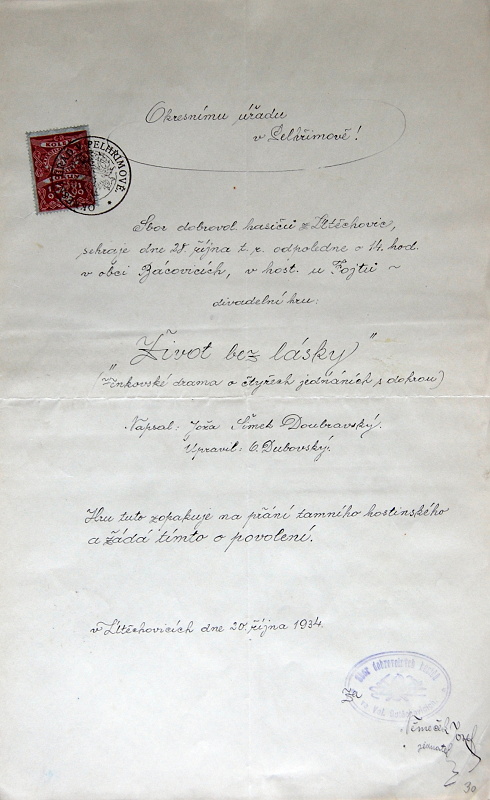 Okresnímu úřadu
v Pelhřimově!
KOLEK
PELHŘIMOVĚ.
Sbor dobrovol. hasičů z Utěchovic,
sehraje dne 28. října t. r. odpoledne o 14. hod.
v obci Bácovicích, v host. u Fojtů ~
divadelní hru:
„Život bez lásky"
(Venkovské drama o čtyřech jednáních s dohrou)
Napsal: Joža Šimek Doubravský.
Upravil: O. Dubovský.
Hru tuto zopakuje na přání tamního hostinského
a žádá tímto o povolení.
v Utěchovicích dne 20. října 1934.
Sbor dobrovolných hasičů
Za
Němeček Josef
jednatel
30